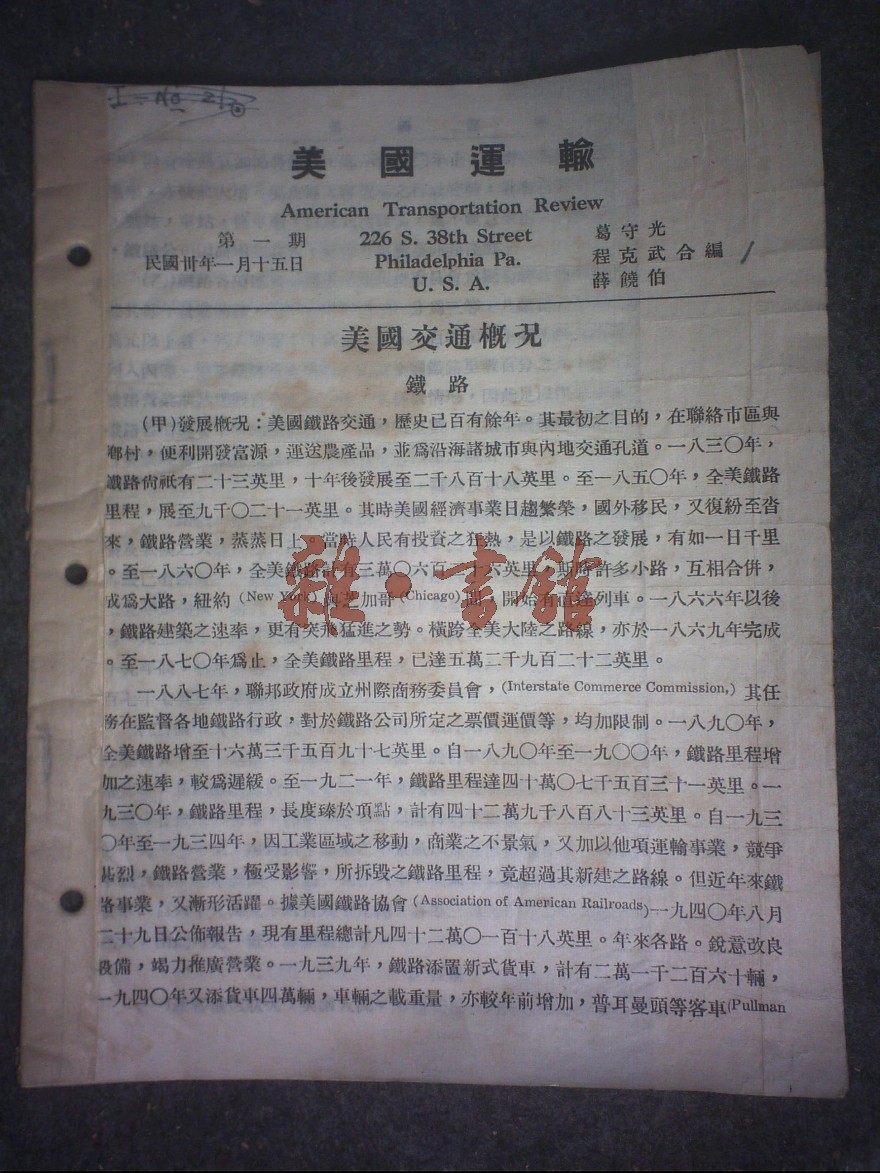 美國運輸
American Transportation Review
第一期
民國卅年一月十五日
226 S. 38th Street
Philadelphia Pa.
U. S. A.
葛守光
程克武合編
薛饒伯
美國交通概況
鐵路
(甲)發展概況:美國鐵路交通,歷史已百有餘年。其最初之目的,在聯絡市區與
鄉村,便利開發富源,運送農產品,並爲沿海諸城市與內地交通孔道。一八三〇年,
鐵路尙祇有二十三英里,十年後發展至二千八百十八英里。至一八五〇年,全美鐵路
里程,展至九千〇二十一英里。其時美國經濟事業日趨繁榮,國外移民,又復紛至沓
來,鐵路營業,蒸蒸日上。當時人民有投資之狂熱,是以鐵路之發展,有如一日千里
。至一八六〇年,全美鐵路計有三萬〇六百二十六英里,斯時許多小路,互相合併,
成爲大路,紐約(New York)與芝加哥(Chicago)間,開始有直達列車。一八六六年以後
,鐵路建築之速率,更有突飛猛進之勢。橫跨全美大陸之路線,亦於一八六九年完成
。至一八七〇年爲止,全美鐵路里程,已達五萬二千九百二十二英里。
一八八七年,聯邦政府成立州際商務委員會,(Interstate Commerce Commission,)其任
務在監督各地鐵路行政,對於鐵路公司所定之票價運價等,均加限制。一八九〇年,
全美鐵路增至十六萬三千五百九十七英里。自一八九〇年至一九〇〇年,鐵路里程增
加之速率,較爲遲緩。至一九二一年,鐵路里程達四十萬〇七千五百三十一英里。一
九三〇年,鐵路里程,長度臻於項點,計有四十二萬九千八百八十三英里。自一九三
〇年至一九三四年,因工業區域之移動,商業之不景氣,又加以他項運輸事業,競爭
甚烈,鐵路營業,極受影響,所拆毀之鐵路里程,竟超過其新建之路線。但近年來鐵
路事業,又漸形活躍。據美國鐵路協會(Association of American Railroads)一九四〇年八月
二十九日公佈報告,現有里程總計凡四十二萬〇一百十八英里。年來各路。銳意改良
設備,竭力推廣營業。一九三九年,鐵路添置新式貨車,計有二萬一千二百六十輛,
一九四〇年又添貨車四萬輛,車輛之載重量,亦較年前增加,普耳曼頭等客車(Pullman
雜·書館